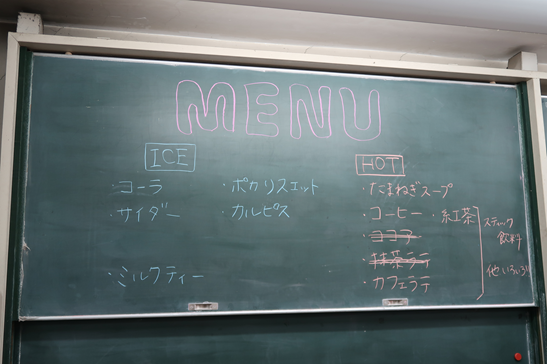 MENU
ICE
・コーラ ・ポカリスエット
・サイダー ・カルピス
・ミルクティー
HOT
・たまねぎスープ
・コーヒー ・紅茶
・ココア
・抹茶ラテ
・カフェラテ
スティック
飲料
他いろいろ!